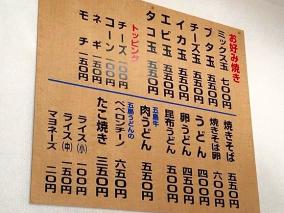 お好み焼き
ミックス玉 七〇〇円
ブタ玉 五五〇円
チーズ玉 五五〇円
イカ玉 五五〇円
エビ玉 五五〇円
タコ玉 五五〇円
トッピング
チーズ 一〇〇円
コーン 一〇〇円
ネギ 一五〇円
モチ 一五〇円
焼きそば 五五〇円
焼きそば卵 六〇〇円
うどん 四〇〇円
卵うどん 四五〇円
昆布うどん 五〇〇円
五島牛
肉うどん 六五〇円
五島うどんの
ペペロンチーノ 六五〇円
たこ焼き 三五〇円
ライス(小) 一〇〇円
ライス(中) 一五〇円
マヨネーズ 二〇円